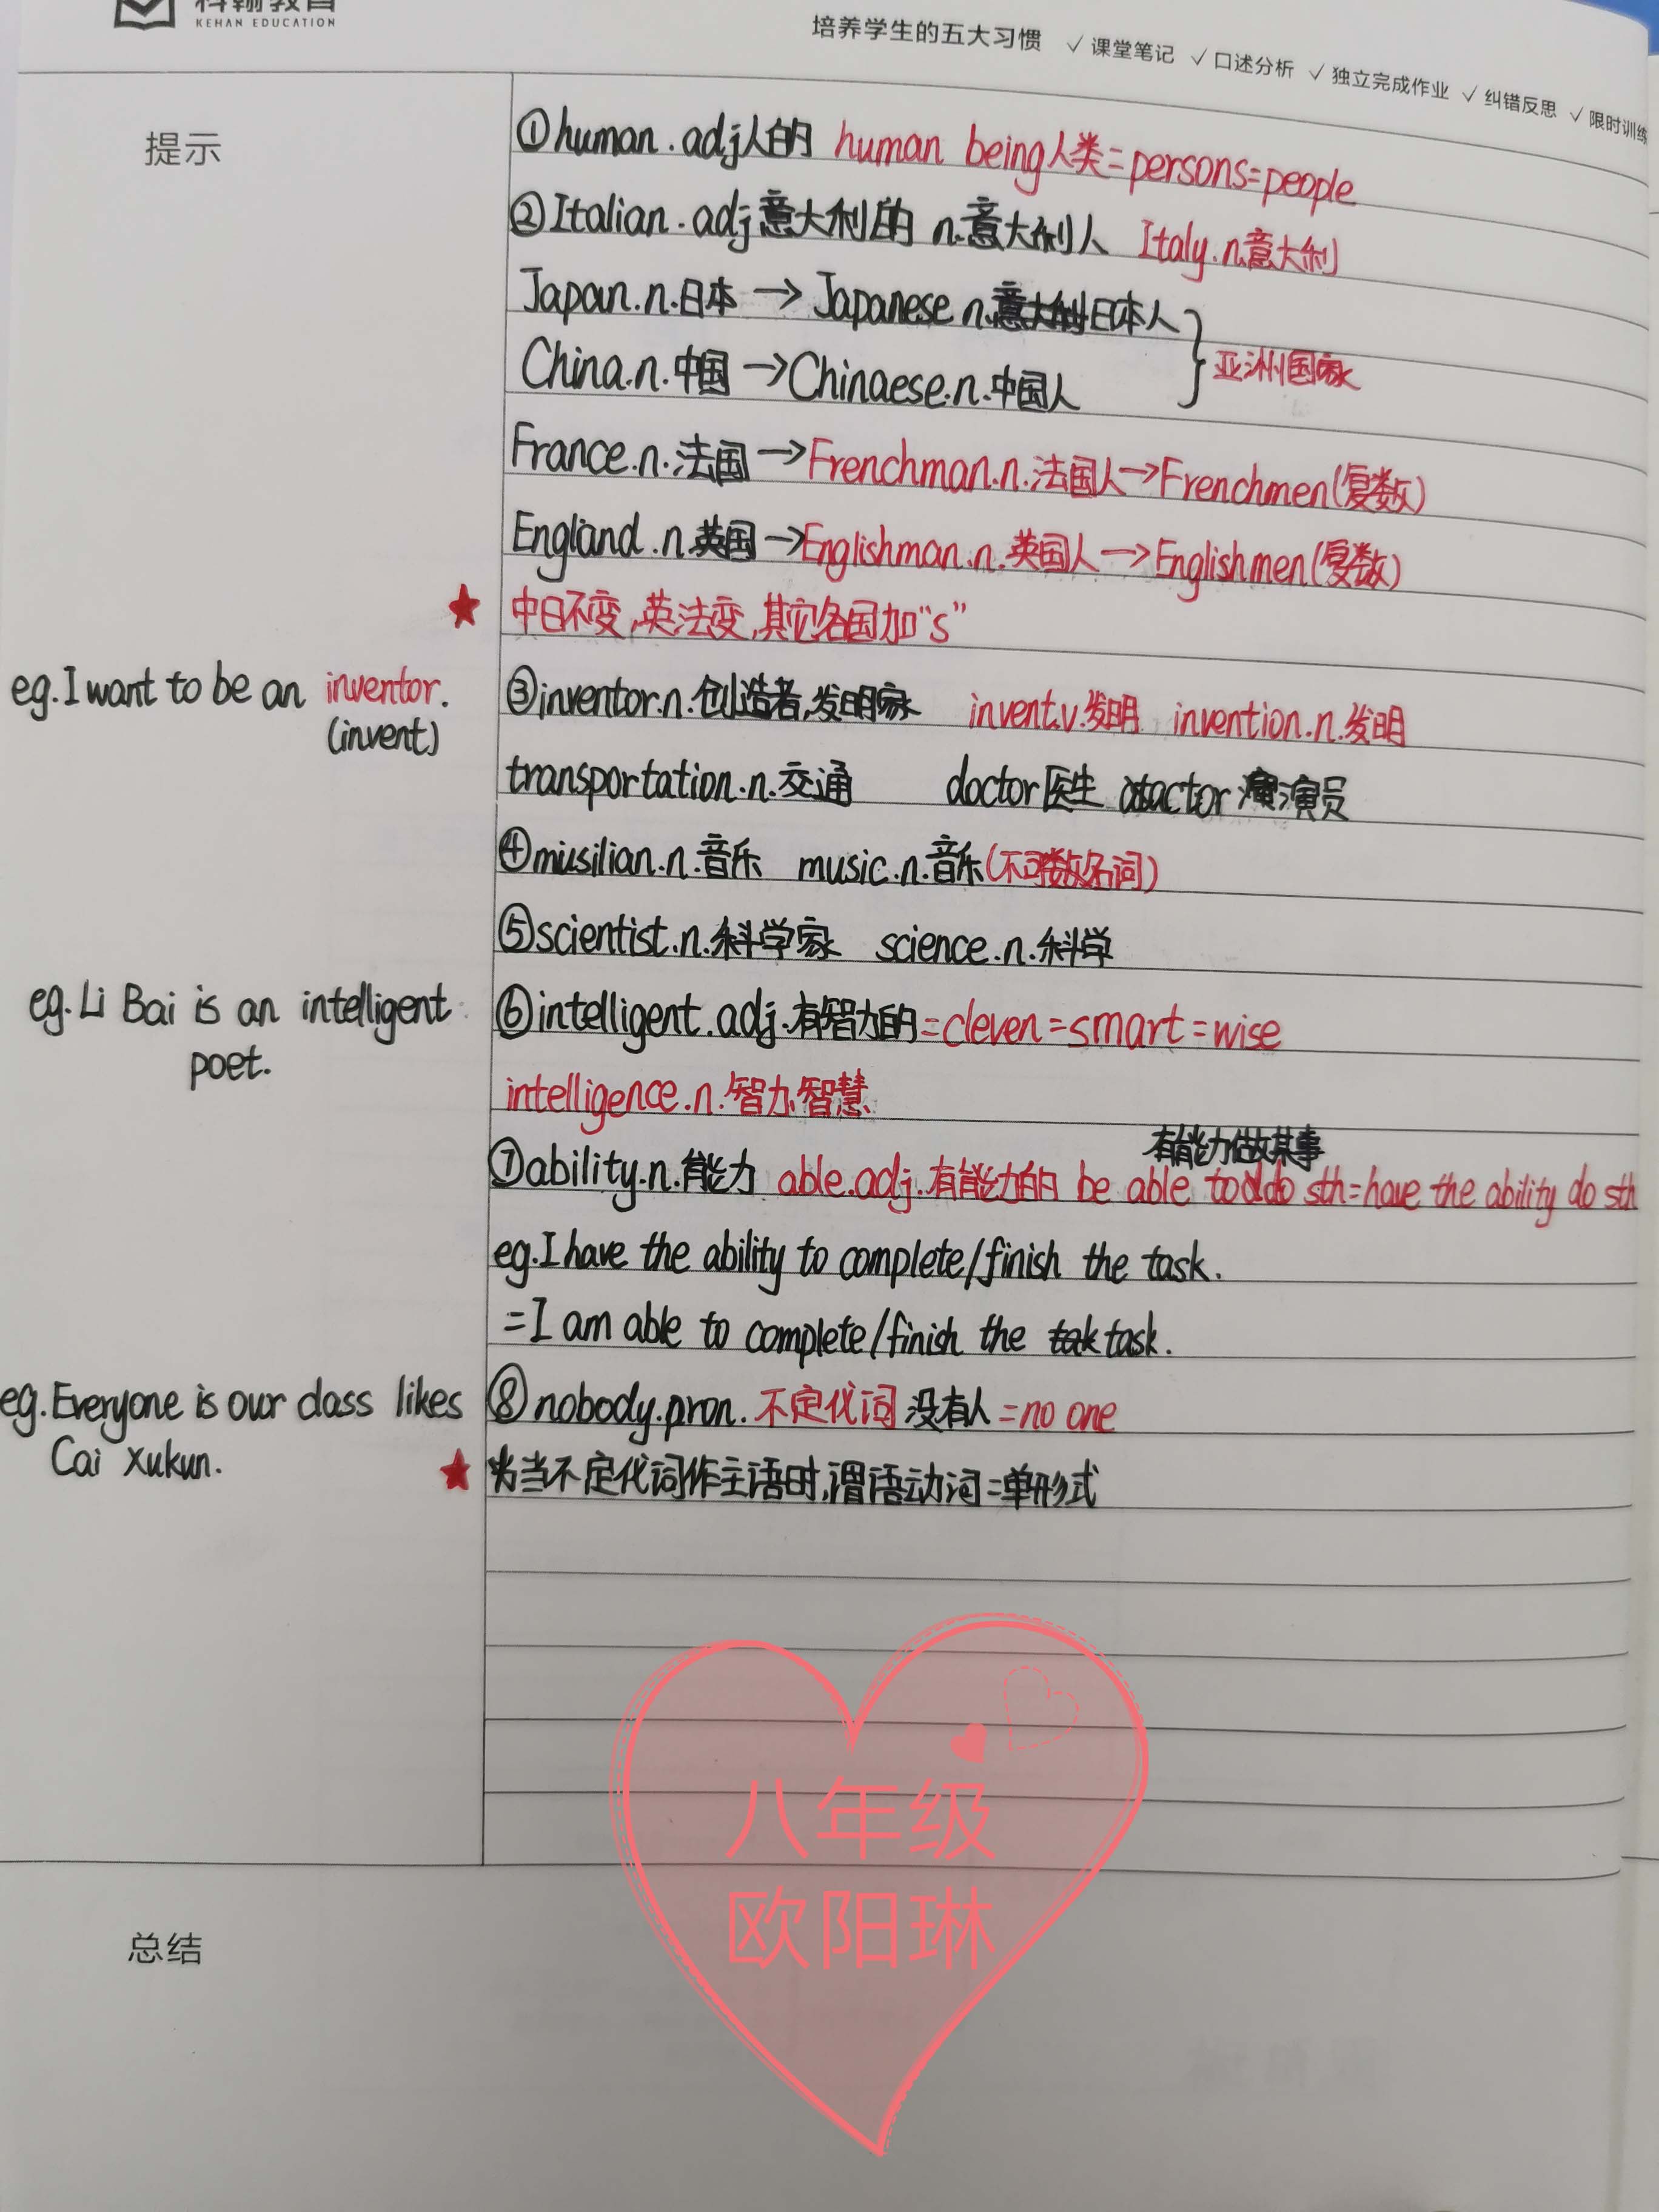 科翰教育
KEHAN EDUCATION
培养学生的五大习惯 ✓课堂笔记 ✓口述分析 ✓独立完成作业 ✓纠错反思 ✓限时训练
提示
①human.adj人的 human being人类=persons=people
②Italian.adj意大利的 n.意大利人 Italy.n.意大利
Japan.n.日本→Japanese n.日本人
China.n.中国→Chinaese.n.中国人
亚洲国家
France.n.法国→Frenchman.n.法国人→Frenchmen(复数)
England.n.英国→Englishman.n.英国人→Englishmen(复数)
★中日不变,英法变,其它各国加"s"
eg.I want to be an inventor.
(invent)
③inventor.n.创造者,发明家 invent.v.发明 invention.n.发明
transportation.n.交通 doctor医生 actor演员
④miusilian.n.音乐 music.n.音乐(不可数名词)
⑤scientist.n.科学家 science.n.科学
eg.Li Bai is an intelligent
poet.
⑥intelligent.adj.有智力的=cleven=smart=wise
intelligence.n.智力、智慧
有能力做某事
⑦ability.n.能力 able.adj.有能力的 be able to do sth=have the ability do sth
eg.I have the ability to complete/finish the task.
=I am able to complete/finish the task.
eg.Everyone is our class likes
Cai Xukun.
⑧nobody.pron.不定代词 没有人=no one
★当不定代词作主语时,谓语动词=单形式
八年级
欧阳琳
总结